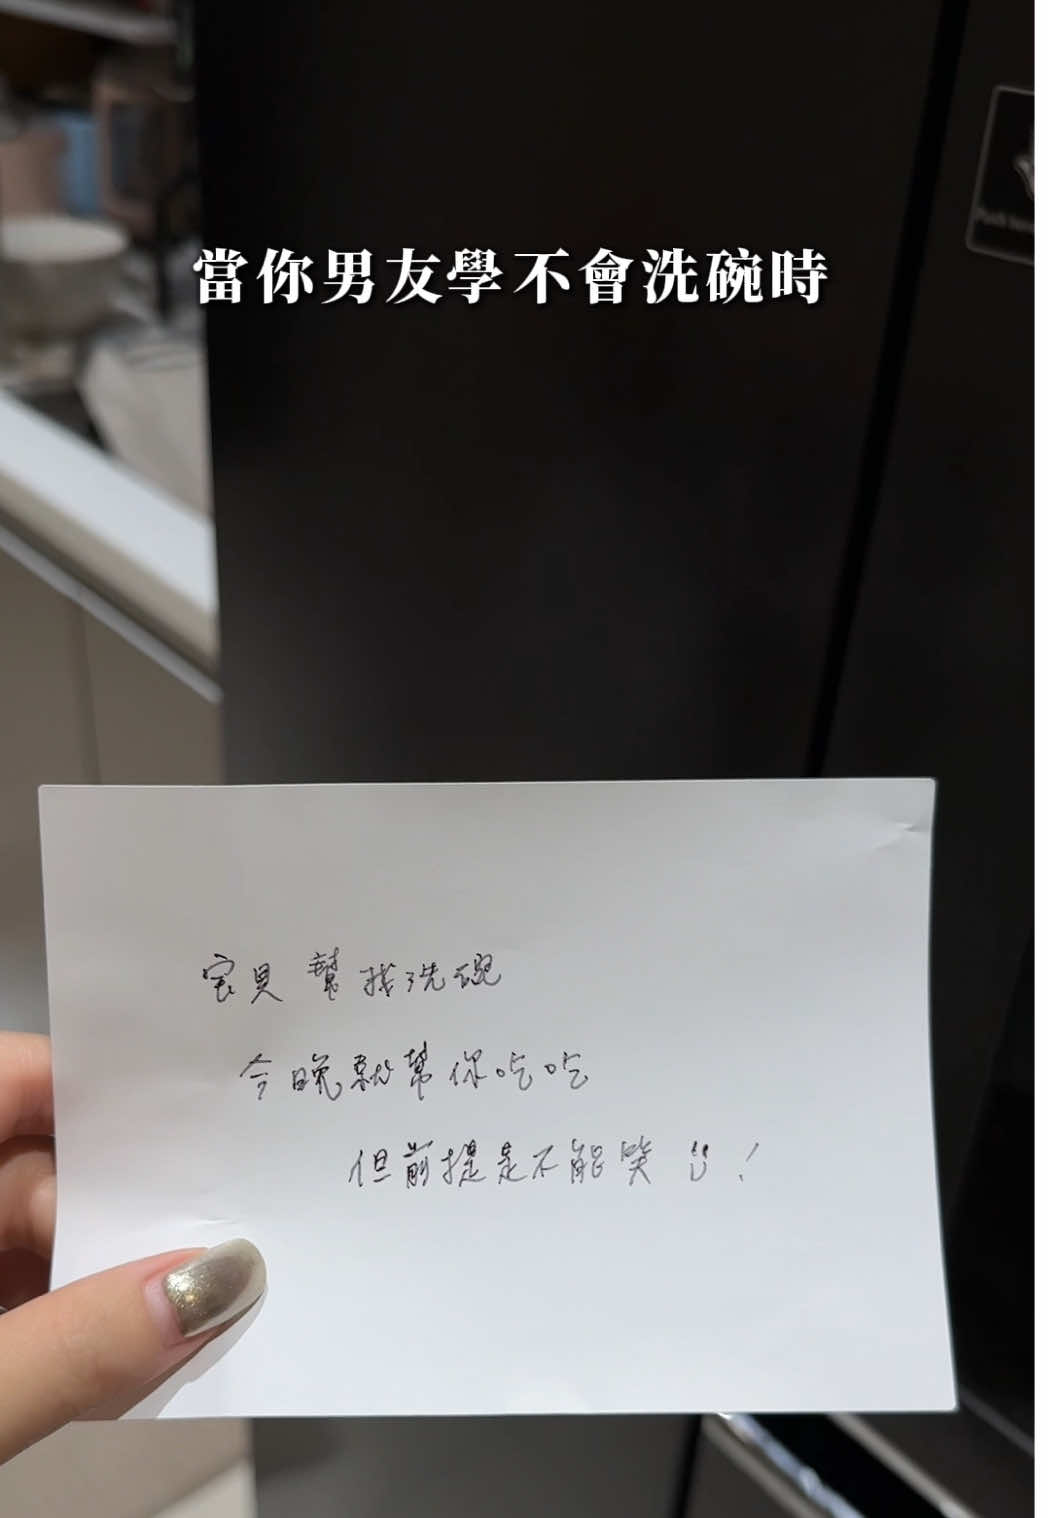 當你男友學不會洗碗時
寶貝幫我洗碗
今晚就幫你吃吃
但前提是不能笑 !